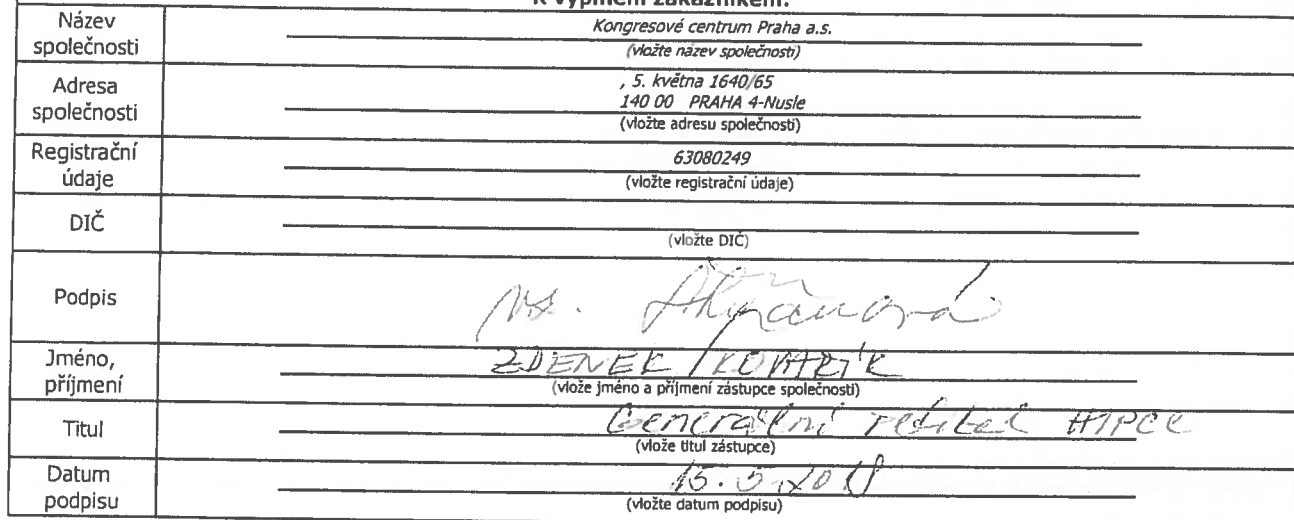 K vyplnění zákazníkem:
Název společnosti
Kongresové centrum Praha a.s.
(vložte název společnosti)
Adresa společnosti
, 5. května 1640/65
140 00 PRAHA 4-Nusle
(vložte adresu společnosti)
Registrační údaje
63080249
(vložte registrační údaje)
DIČ
(vložte DIČ)
Podpis
Jméno, příjmení
ZDENEK KOVAŘÍK
(vlože jméno a příjmení zástupce společnosti)
Titul
Generální ředitel HIPCC
(vlože titul zástupce)
Datum podpisu
15. 5. 2018
(vložte datum podpisu)